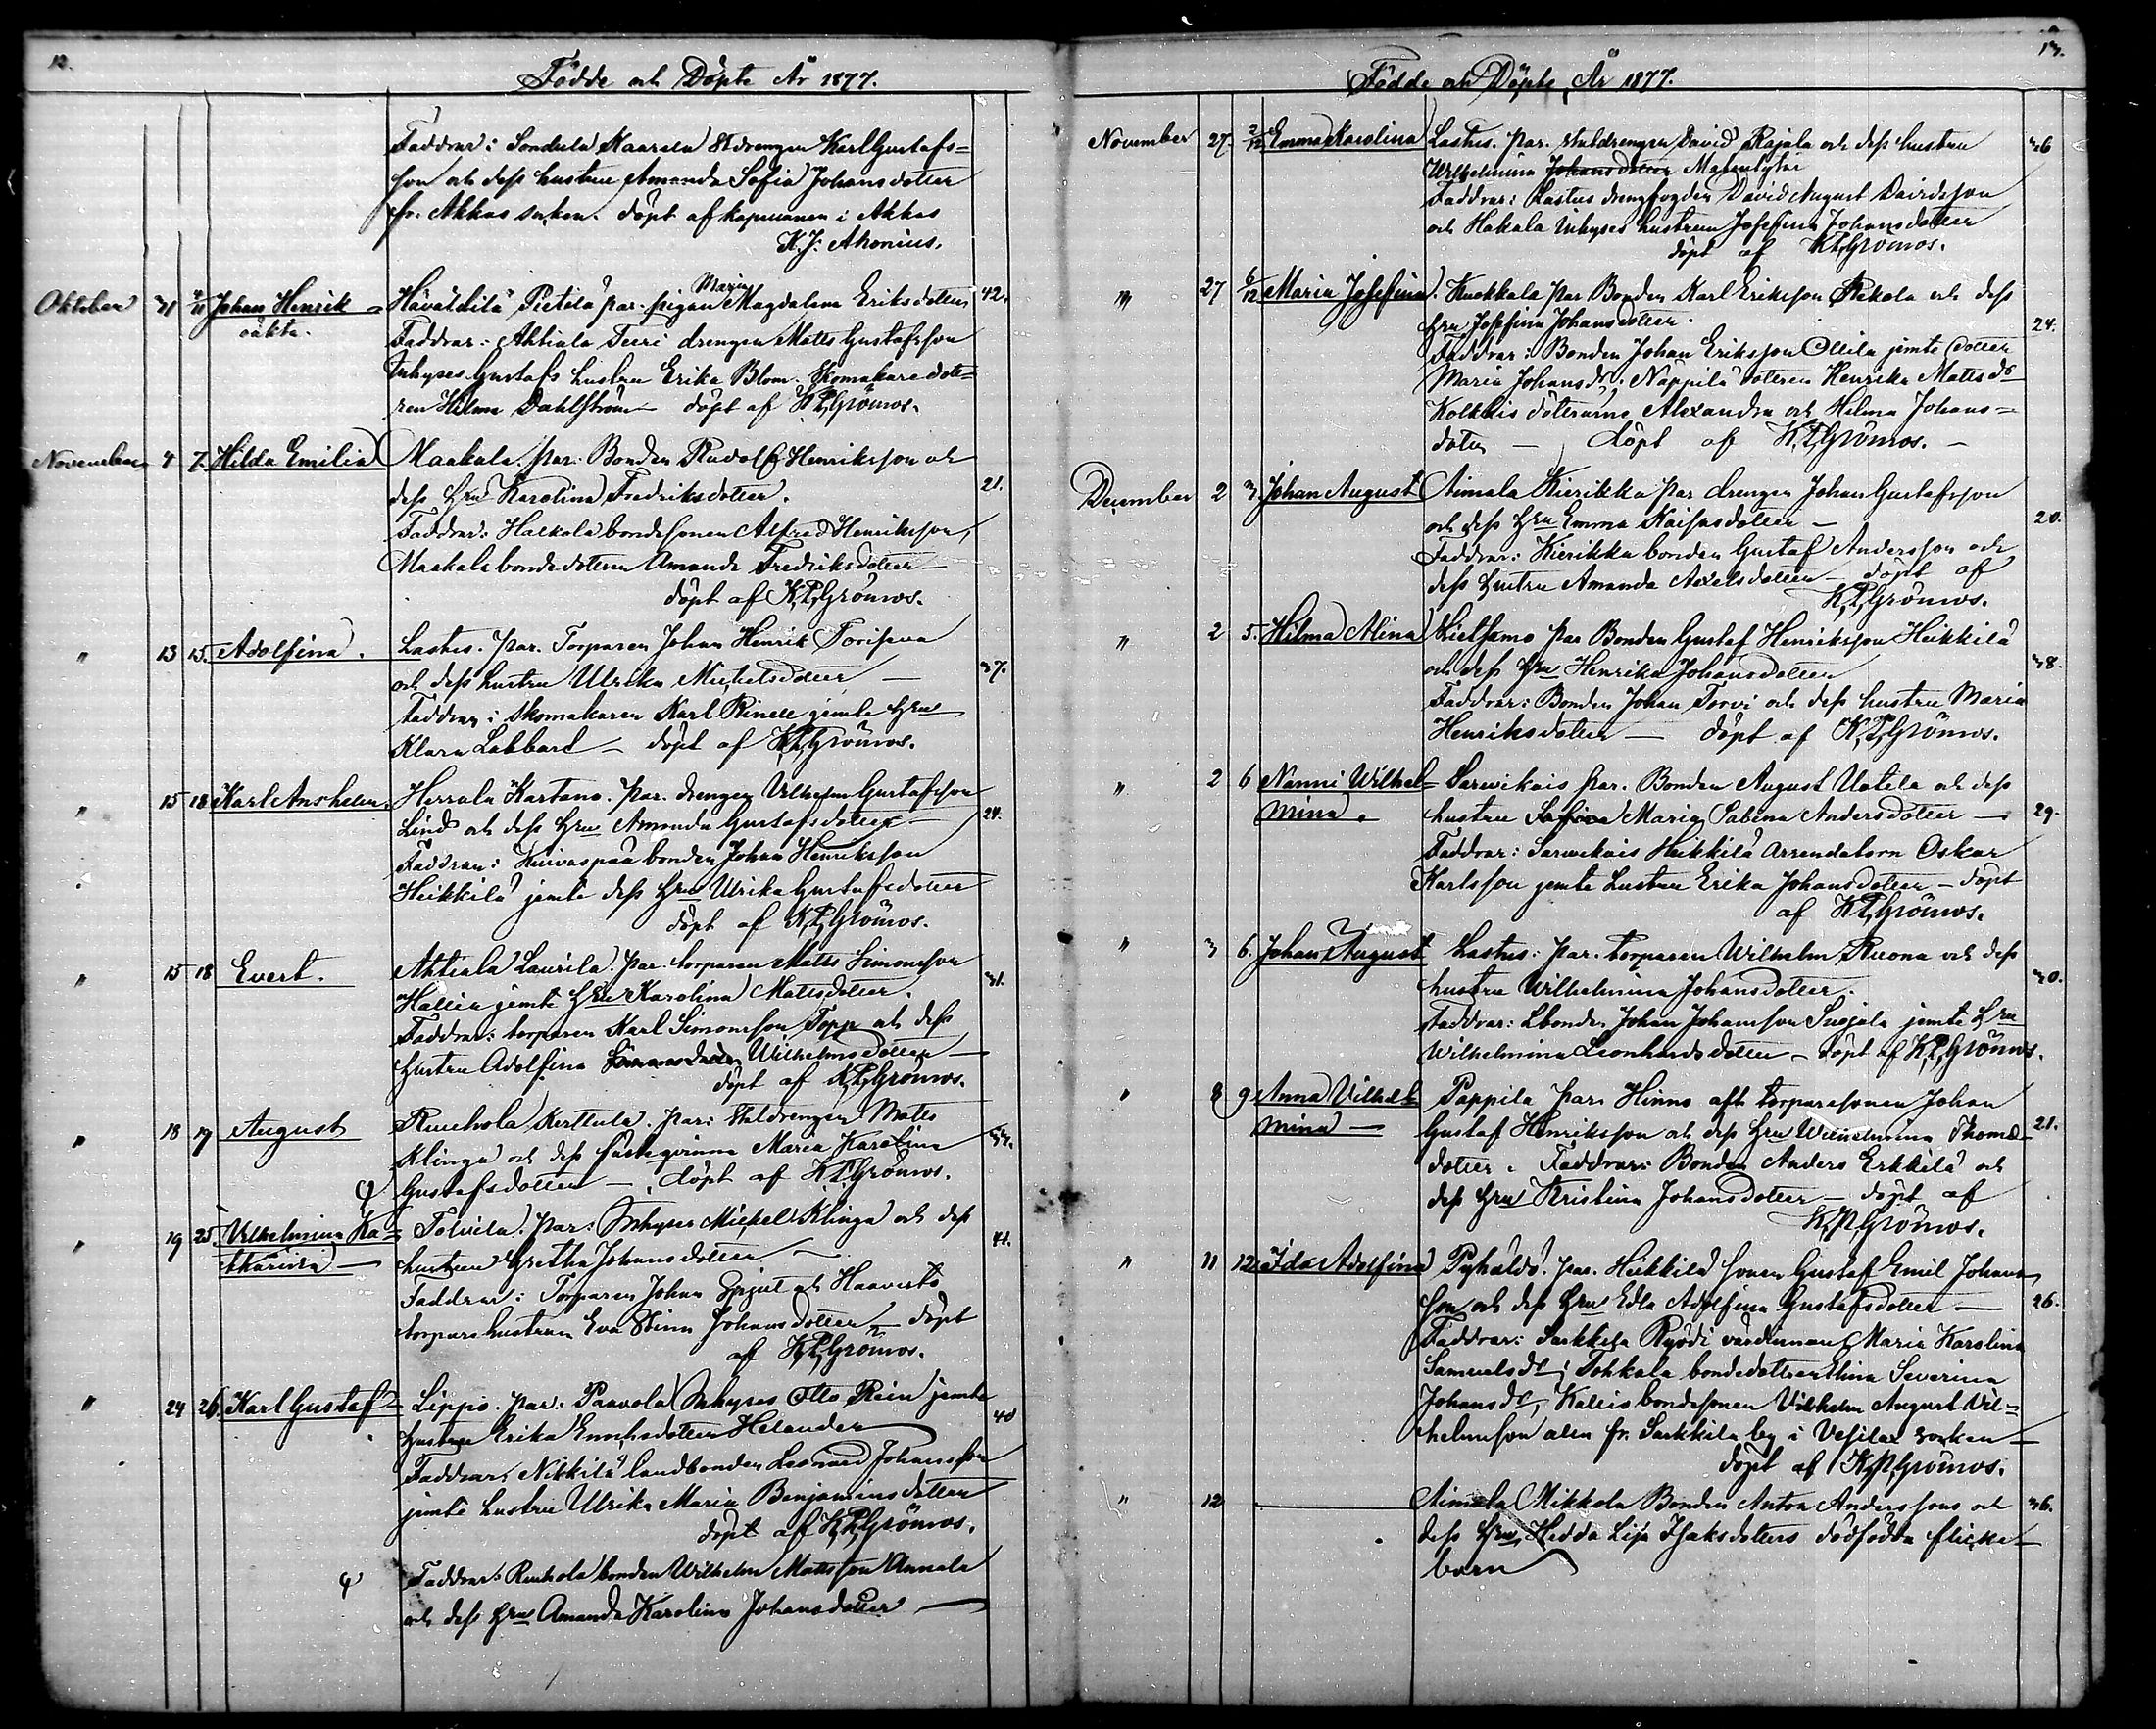 12.
Födde och Döpte År 1877.
Faddrar: Kaarila Stdrengen Karl Gustafs=
son och dess hustru Amanda Sofia Johansdotter
fr. Akkas socken. döpt af kapellanen i Akkas
K. J. Ahonius.
Oktober 31 4/11 Johan Henrik Pietilä par. pigan Maria Magdalena Eriksdotter 42.
oäkta. Faddrar: Ahtiala Teeri drengen Matts Gustafsson
Inhyses Gustafs hustru Erika Blom. Skomakaredott=
ren Hilma Dahlström — döpt af K.P. Grönros.
November 4 7. Hilda Emilia Maakala par: Bonden Rudolf Henriksson och
dess Hru Karolina Fredriksdotter. 21.
Faddrar: bondesonen Alfred Henriksson,
Maakala bondedottren Amanda Fredriksdotter —
döpt af K.P. Grönros.
" 13 15. Adolfina. Lastus. par. Torparen Johan Henrik
och dess hustru Ulrika Mickelsdotter — 37.
Faddrar: Skomakaren Karl Rinell jemte Hru
Klara Labbart — döpt af K.P. Grönros.
" 15 18 Karl Anshelm. Herrala Kartano. par. drengen Vilhelm Gustafsson
Lind och dess Hru Amanda Gustafsdotter — 24.
Faddrar: Kuivaspää bonden Johan Henriksson
Heikkilä jemte dess Hru Ulrika Gustafsdotter
döpt af K.P. Grönros.
" 15 18 Evert. Ahtiala Laurila. par. torparen Matts Simonsson
Hallin jemte Hru Karolina Mattsdotter. 31.
Faddrar: torparen Karl Simonsson Topp och dess
Hustru Adolfina Wilhelmsdotter —
döpt af K.P. Grönros.
" 18 19 August Ruuhola Kerttula. par: Stdrengen Matts
Klinga och dess fästeqvinna Maria Karolina 34.
Gustafsdotter — döpt af K.P. Grönros.
" 19 25. Vilhelmina Ka= par: Inhyses Mickel Klinga och dess 41.
tharina — hustru Gretha Johansdotter —
Faddrar: Torparen Johan Spjut och Haavisto
torparehustrun Eva Stina Johansdotter — döpt
af K.P. Grönros.
" 24 26. Karl Gustaf Lippo. par: Paavola Inhyses Otto Rein jemte 40
Hustru Erika Enochsdotter Helander
Faddrar: Nikkilä landbonden Leonard Johansson
jemte hustru Ulrika Maria Benjaminsdotter
döpt af K.P. Grönros.
φ Faddrar: Ruuhola bonden Wilhelm Mattsson Annala
och dess Hru Amanda Karolina Johansdotter —
13.
Födde och Döpte År 1877.
November 27. 2/12 Emma Karolina Lastus. par. Staldrengen David Rajala och dess hustru 36
Wilhelmina Johansdotter
Faddrar: Lastus drengfogden David August Davidsson
och Hakala Inhyses hustrun Josefina Johansdotter
döpt af K.P. Grönros.
" 27 6/12 Maria Josefina. Kuokkala par Bonden Karl Eriksson Rekola och dess
Hru Josefina Johansdotter. 24.
Faddrar: Bonden Johan Eriksson Ollila jemte dotter
Maria Johansdr. Näppilä dottren Henrika Mattsdr
Kolkkis döttrarne Alexandra och Hilma Johans=
dotter — döpt af K.P. Grönros. —
December 2 3 Johan August Aimala Kierikka par drengen Johan Gustafsson
och dess Hru Emma Kaisasdotter — 20.
Faddrar: Kierikka bonden Gustaf Andersson och
dess Hustru Amanda Axelsdotter — döpt af
K.P. Grönros.
" 2 5. Hilma Alina Lietsamo par Bonden Gustaf Henriksson Heikkilä
och dess Hru Henrika Johansdotter 38.
Faddrar: Bonden Johan Torvi och dess hustru Maria
Henriksdotter — döpt af K.P. Grönros.
" 2 6 Nanni Wilhel= Sarwikais par. Bonden August Uotila och dess
mina. hustru Maria Sabina Andersdotter — 29.
Faddrar: Sarwikais Heikkilä Arrendatorn Oskar
Karlsson jemte hustru Erika Johansdotter — döpt
af K.P. Grönros.
" 3 6. Johan August Lastus: par. torparen Wilhelm Ruona och dess
hustru Wilhelmina Johansdotter. 30.
Faddrar: Lbonden Johan Johansson Suojala jemte Hru
Wilhelmina Leonhardsdotter — döpt af K.P. Grönros.
" 8 9 Anna Vilhel= Pappila par. Hinno aft. torparesonen Johan
mina — Gustaf Henriksson och dess Hru Wilhelmina Thomas= 21.
dotter. Faddrar: Bonden Anders Erkkilä och
dess Hru Kristina Johansdotter — döpt af
K.P. Grönros.
" 11 12. Ida Adolfina Pyhältö. par. Heikkilä sonen Gustaf Emil Johans
son och dess Hru Edla Adolfina Gustafsdotter — 26.
Faddrar: Sarkkila Ryödi värdinnan Maria Karolina
Samuelsdr, Tohkala bondedottren Elina Severina
Johansdr, Kallis bondesonen Vilhelm August Vil=
helmsson alla fr. Sarkkila by i Vesilax socken —
döpt af K.P. Grönros.
" 12 — Aimala Mikkola Bonden Anton Anderssons och 36.
dess Hru Hedda Lisa Isaksdotters dödfödda flicke=
barn